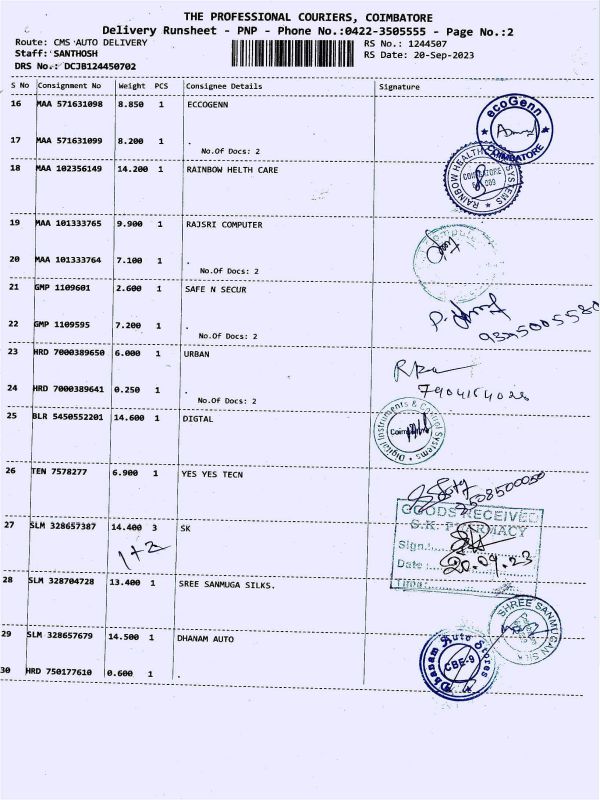 THE PROFESSIONAL COURIERS, COIMBATORE
Delivery Runsheet - PNP - Phone No.:0422-3505555 - Page No.:2
Route: CMS AUTO DELIVERY RS No.: 1244507
Staff: SANTHOSH RS Date: 20-Sep-2023
DRS No.: DCJB124450702
S No Consignment No Weight PCS Consignee Details Signature
16 MAA 571631098 8.850 1 ECCOGENN
ecoGenn
COIMBATORE
17 MAA 571631099 8.200 1 .
No.Of Docs: 2
18 MAA 102356149 14.200 1 RAINBOW HELTH CARE
RAINBOW HEALTH SYSTEMS
19 MAA 101333765 9.900 1 RAJSRI COMPUTER
20 MAA 101333764 7.100 1 .
No.Of Docs: 2
21 GMP 1109601 2.600 1 SAFE N SECUR
22 GMP 1109595 7.200 1 .
No.Of Docs: 2
23 HRD 7000389650 6.000 1 URBAN
24 HRD 7000389641 0.250 1 .
No.Of Docs: 2
25 BLR 5450552201 14.600 1 DIGTAL
Digital Instruments & Control Systems
26 TEN 7578277 6.900 1 YES YES TECN
GOODS RECEIVED
S.K. PHARMACY
27 SLM 328657387 14.400 3 SK
1+2
Sign.:
Date : 20.09.23
Time:
28 SLM 328704728 13.400 1 SREE SANMUGA SILKS.
SHREE SANMUGAN SILK
29 SLM 328657679 14.500 1 DHANAM AUTO
Dhanam Auto Stores
CBE-9
30 HRD 750177610 0.600 1 .